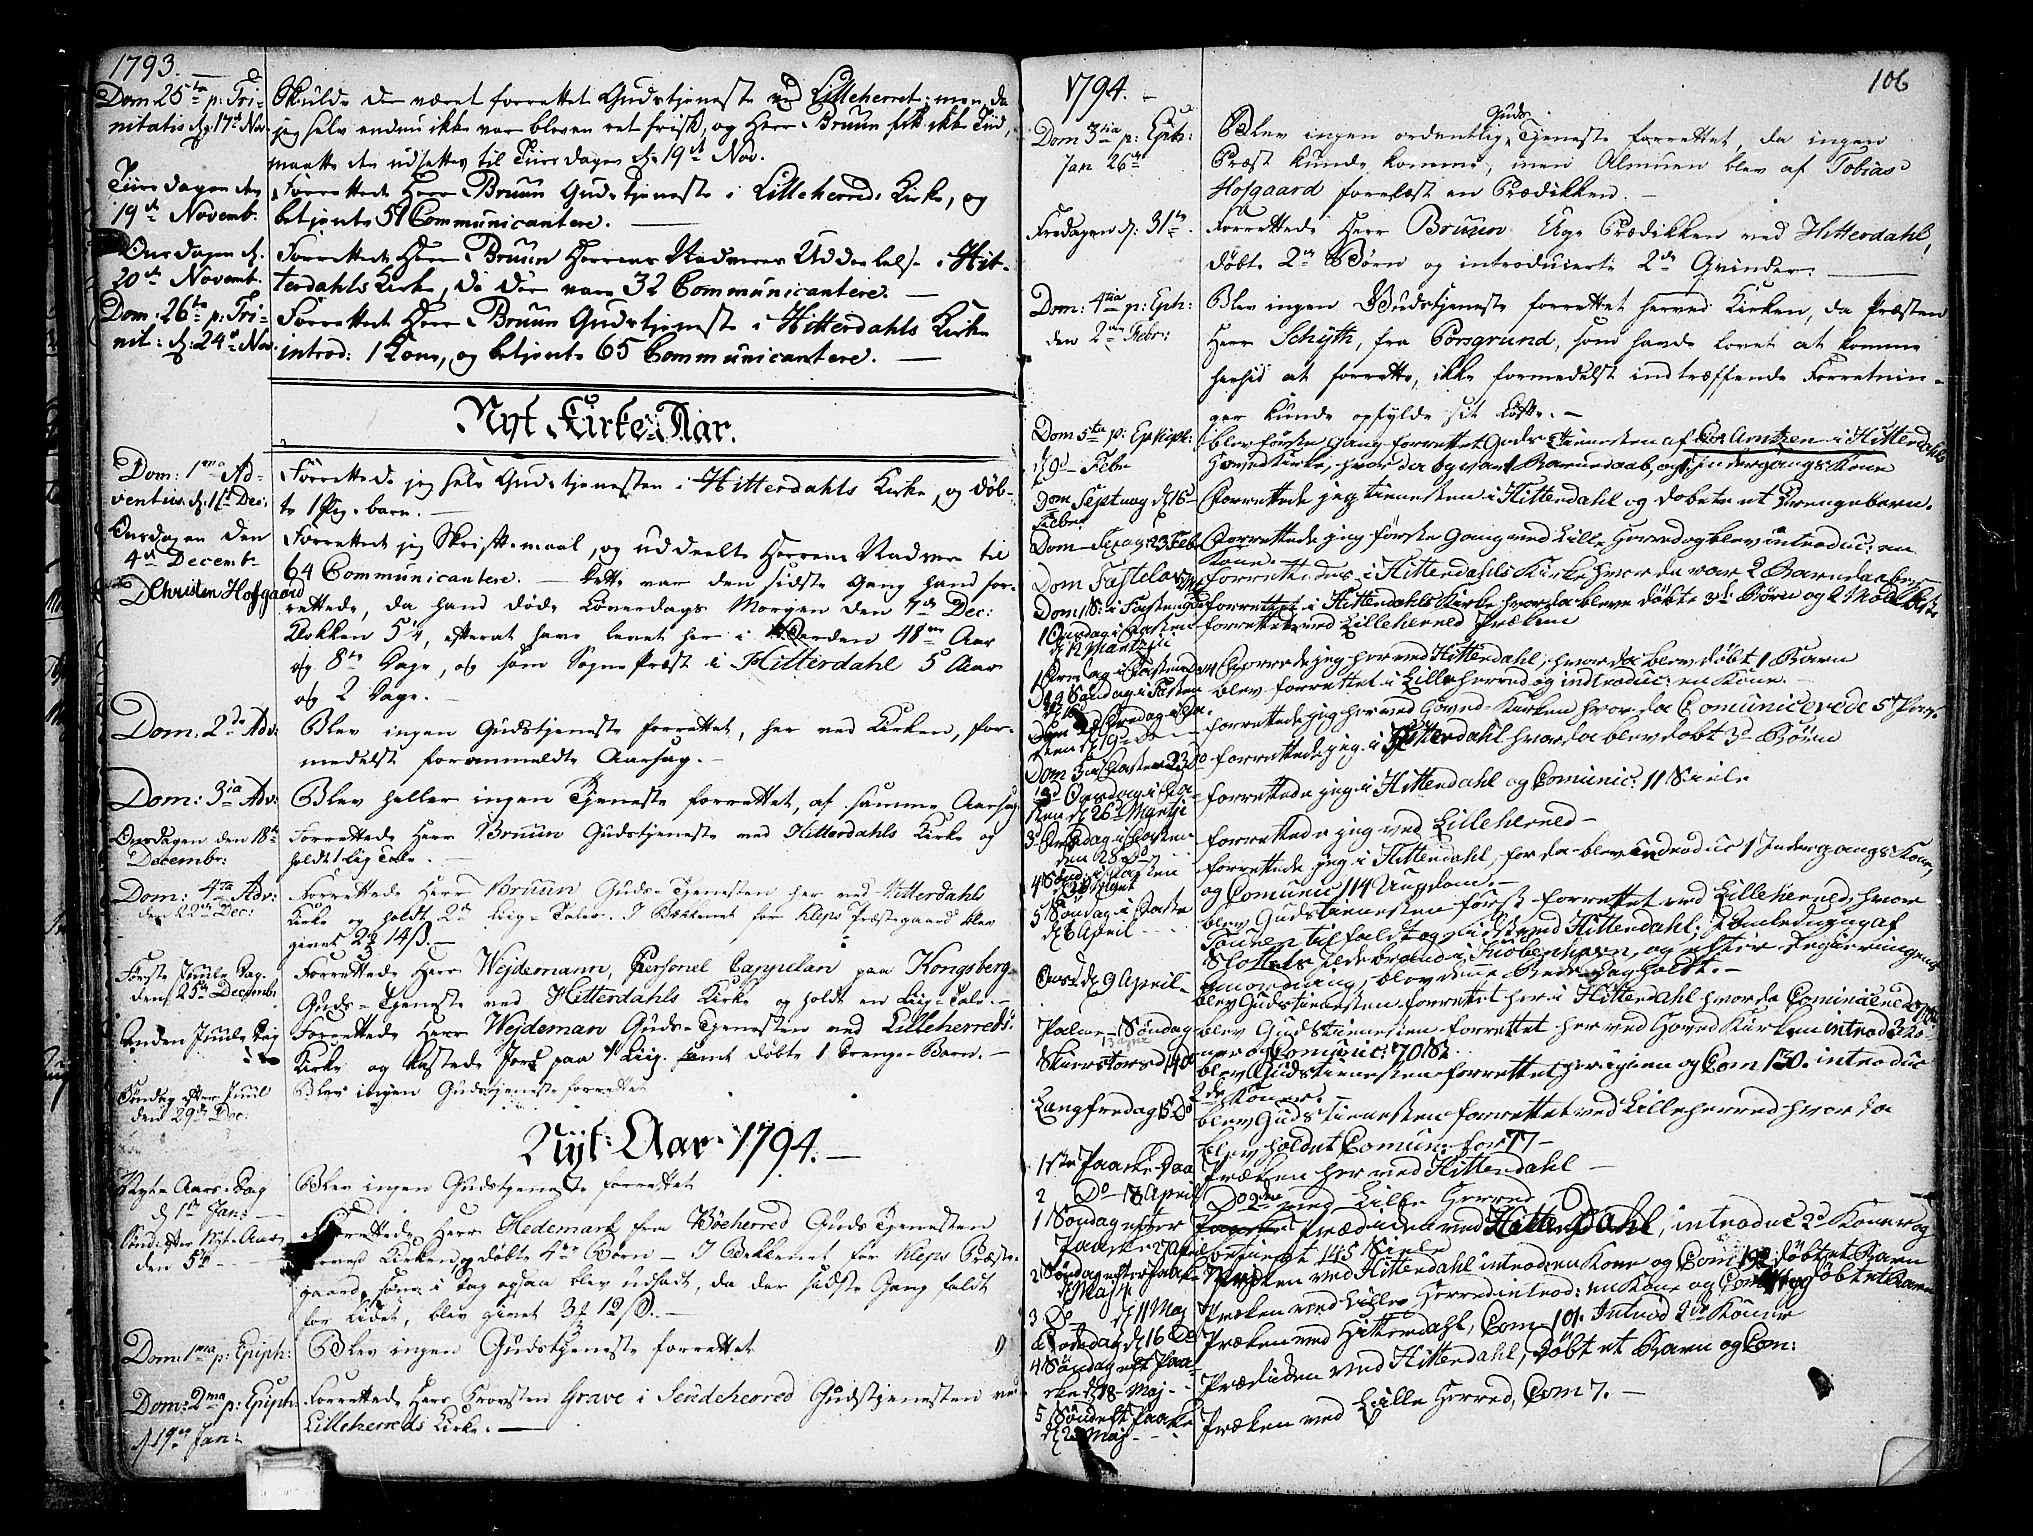 1793. —
Dom 25ta p: Tri-
nitatis d: 17de Nov.
Skulde der været forrettet Gudstjeneste ved Lilleherret; men da
jeg selv endnu ikke var bleven ret frisk, og Herr Bruun fik ikke Tiid,
maatte den udsættes til Tiirsdagen d: 19de Nov.
Tiirsdagen den
19de Novemb.
Forrettede Herr Bruun Gudstjeneste i Lilleherreds Kirke, og
betjente 51 Communicantere. —
Onsdagen d:
20de Novemb.
Forrettede Herr Bruun Herrens Nadveres Uddeelelse i Hit-
terdahls Kirke, da der vare 32 Communicantere. —
Dom: 26ta p: Tri-
nit: d: 24de Nov.
Forrettede Herr Bruun Gudstjeneste i Hitterdahls Kirke
introd: 1 Kone, og betjente 65 Communicantere. —
Nyt Kirke-Aar.
Dom: 1ma Ad-
ventus d: 1ste Dec:
Forrettede jeg selv Gudstjenesten i Hitterdahls Kirke, og døb-
te 1 Pige-barn. —
Onsdagen den
4de Decemb.
Forrettede jeg Skriftemaal, og uddeelte Herrens Nadvere til
64 Communicantere. — Dette var den sidste Gang hand for-
D Christen Hofgaard
rettede, da hand døde Løverdags Morgen den 7de Dec:
Klokken 5¼, efterat have levet her i Verden 48 Aar
og 8te Dage, og som Sogne Præst i Hitterdahl 5 Aar
og 2 Dage. —
Dom. 2de Adv:
Blev ingen Gudstjeneste forrettet, her ved Kirken, for-
medelst foranmeldte Aarsag. —
Dom: 3ia Adv:
Blev heller ingen Tjeneste forrettet, af samme Aarsag.
Onsdagen den 18de
Decembr:
Forrettede Herr Bruun Gudstjeneste ved Hitterdahls Kirke og
holdt 1 Liig Tale. —
Dom: 4ta Adv:
den 22de Dec:
Forrettede Herr Bruun Guds-Tjenesten her ved Hitterdahls
Kirke og holdt 2de Liig-Taler. I Bekkenet for Kleps Præstegaard blev
givet 2 14 ß. —
Første Juule Dag
den 25de Decemb:
Forrettede Herr Wejdemann, Personel Cappelan paa Kongsberg
Guds-Tjeneste ved Hitterdahls Kirke og holdt en Liig-Tale. —
Anden Juule Dag
Forrettede Herr Wejdeman Guds-Tjenesten ved Lilleherreds:
Kirke og kastede Jord paa 1 Liig samt døbte 1 Drenge-Barn. —
Søndag efter Juul
den 29de Dec:
Blev ingen Gudstjeneste forrettet
Nyt-Aar 1794. —
Nyt-Aars-Dag
d 1ste Jan:
Blev ingen Gudstjeneste forrettet
Sönd: efter Nyt-Aar
den 5te
Forrettede Herr Hedemark fra Böeherred Guds Tjenesten
Kirken, døbte 4re Børn — I Bekkenet for Kleps Præste-
gaard, som i dag ogsaa blev udsadt, da der sidste Gang faldt
for Lidet, blev givet 3 12 ß. —
Dom: 1ma p: Epiph:
Blev ingen Gudstjeneste forrettet
Dom: 2ma p: Epiph:
d 19de Jan:
Forrettede Herr Provsten Grave i Sendeherred Gudstjenesten ved
Lilleherreds Kirke. —
1794. —
106
Dom 3tia p: Epih:
Jan 26de
Guds
Blev ingen ordentlig Tjeneste forrettet, da ingen
Præst kunde komme, men Almuen blev af Tobias
Hofgaard forelæst en Prædikken. —
Fredagen d: 31te
Forrettede Herr Bruun Uge Prædikken ved Hitterdahl,
døbte 2de Børn og introducerte 2de Qvinder. —
Dom: 4tia p: Eph:
den 2den Febr:
Blev ingen Gudstjeneste forrettet herved Kirken, da Præsten
Herr Schyth, fra Porsgrund, som havde lovet at komme
herhid at forrette, ikke formedelst indtræffende Forretnin-
ger kunde opfylde sit Løfte. —
Dom 5ta p: Epiph:
d 9de Febr
blev første Gang forrettet Guds Tienesten af Arntzen i Hitterdahls
Hoved Kirke, hvor da var 1 Barnedaab, og 1 Indgangs Kone
Dom Septuag d 16de
Febr.
Forrettede jeg tienesten i Hitterdahl og døbete et Drengebarn.
Dom Sexag: 23 Feb
Forrettede jeg første Gang ved Lille Herred og blev introduc: en
Kone.
Dom Fastelav
forrettedes i Hitterdahls Kirke hvor da var 2 Barndaaber
Dom 1 S: i Fasten
forrettet i Hitterdahls Kirke hvor da bleve døbte 3de Børn og
1 Onsdag i Fasten
d 12 Martzii
forrettet ved Lilleherred Præken
forrettede jeg her ved Hitterdahl, hvor da blev døbt 1 Barn
2 Søndag i Fasten
blev forrettet i Lilleherred og introduc: en Kone. —
forrettede jeg her ved Hoved-Kirken hvor da Comunicerede 5
forrettede jeg i Hitterdahl hvor da blev døbt 3de Børn
3d Onsdag i Fa-
sten d 26de Martji
forrettede jeg i Hitterdahl og Comunic: 11 Siele
forrettede jeg ved Lilleherred —
4 Sönd: i Fasten
forrettede jeg i Hitterdahl, for da blev introduc 1 Indgangs Kone,
og Comunic 114 Ungdom. —
5 Søndag i Faste
d 6 April
blev Gudstienesten først forrettet ved Lilleherred, hvor
Touren tilfaldt og siden ved Hitterdahl; I Anledning af
Slottets Ildebrand i Kiøbenhavn, og efter Regieringens
anordning, blev denne Bede-Dag holdt. —
Onsd d 9 April
blev Gudstienesten forrettet her i Hitterdahl hvor da Cominicerede
Palme-Søndag
13 April
blev Gudstienesten forrettet her ved Hoved Kirken introd 2 Ko-
ner og Comunic: 70 S:
Skiærstorsd
blev Gudstienesten forrettet her igien og Com 130. introduc
2de Koner.
Langfredag
blev Guds Tienesten forrettet ved Lilleherred hvor da
blev holdet Comun: for 77 —
1ste Paaske Daa
Præken her ved Hitterdahl —
2 Do 18 April
Do 2den ved Lille Herred
1 Søndag efter
Paaske
Prædiken ved Hitterdahl, introduc 2d Koner og
betient 145 Siele
2 Søndag efter Paaske
Præken ved Hitterdahl introd: en Kone og Com døbt et Barn
3 Do d 11 Maj
Præken ved Lille Herred introd: en Kone og døbt et Barn
Præken ved Hitterdahl, Com 101. Introd 2de Koner
4 Søndag eft Paa-
ske d 18 Maj
Prædiken ved Hitterdahl, døbt et Barn og Con:
5 Sønd eft Paaske
Maj
Præken ved Lille Herred, Com 7. —